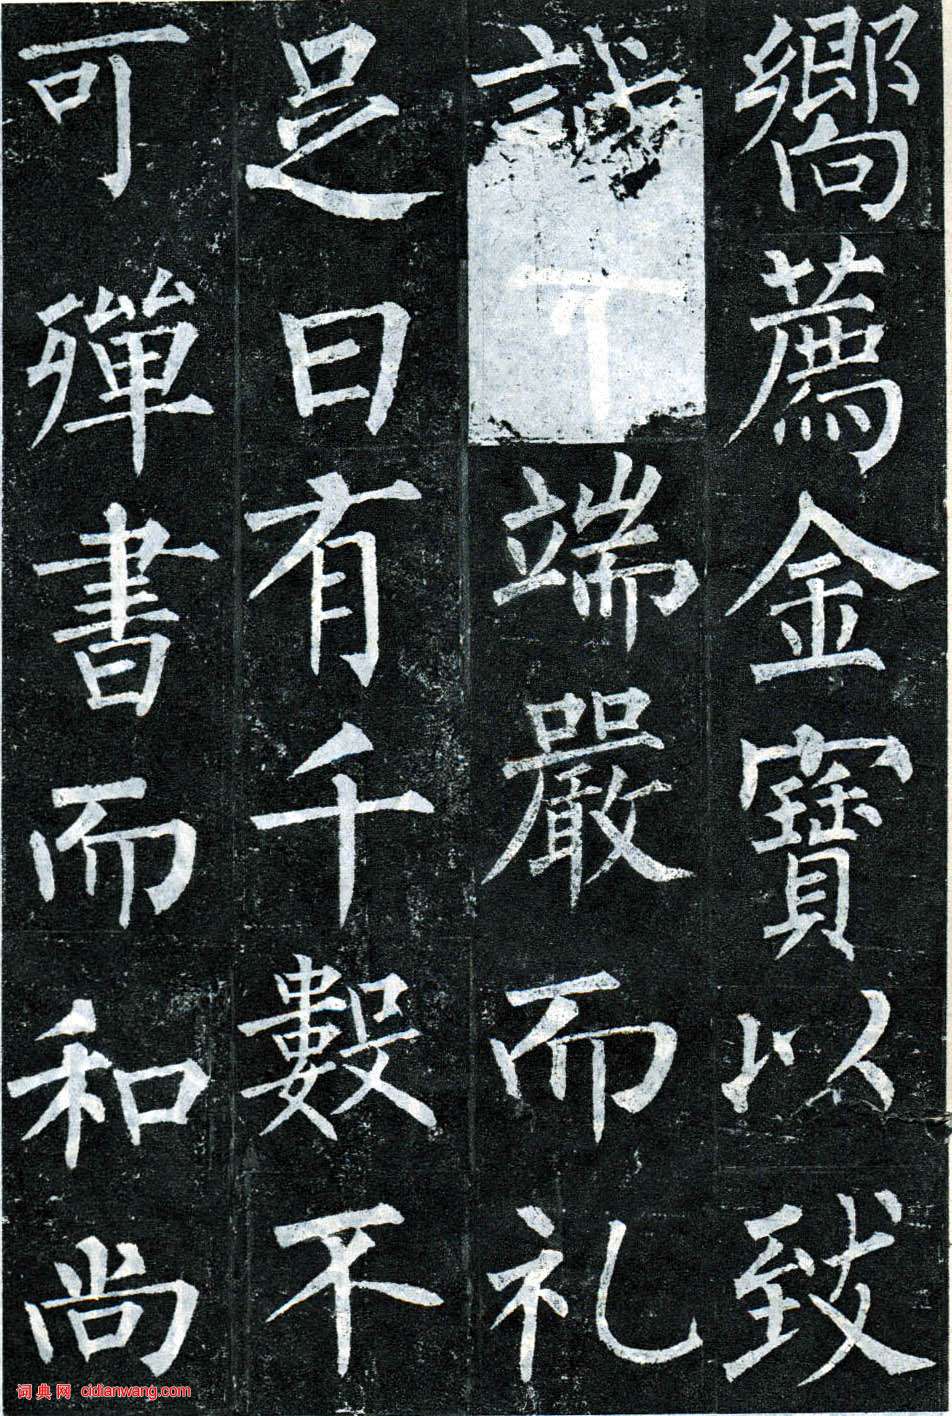 嚮薦金寶以致
誠丁端嚴而礼
足日有千數不
可殫書而和尚
词典网 cidianwang.com